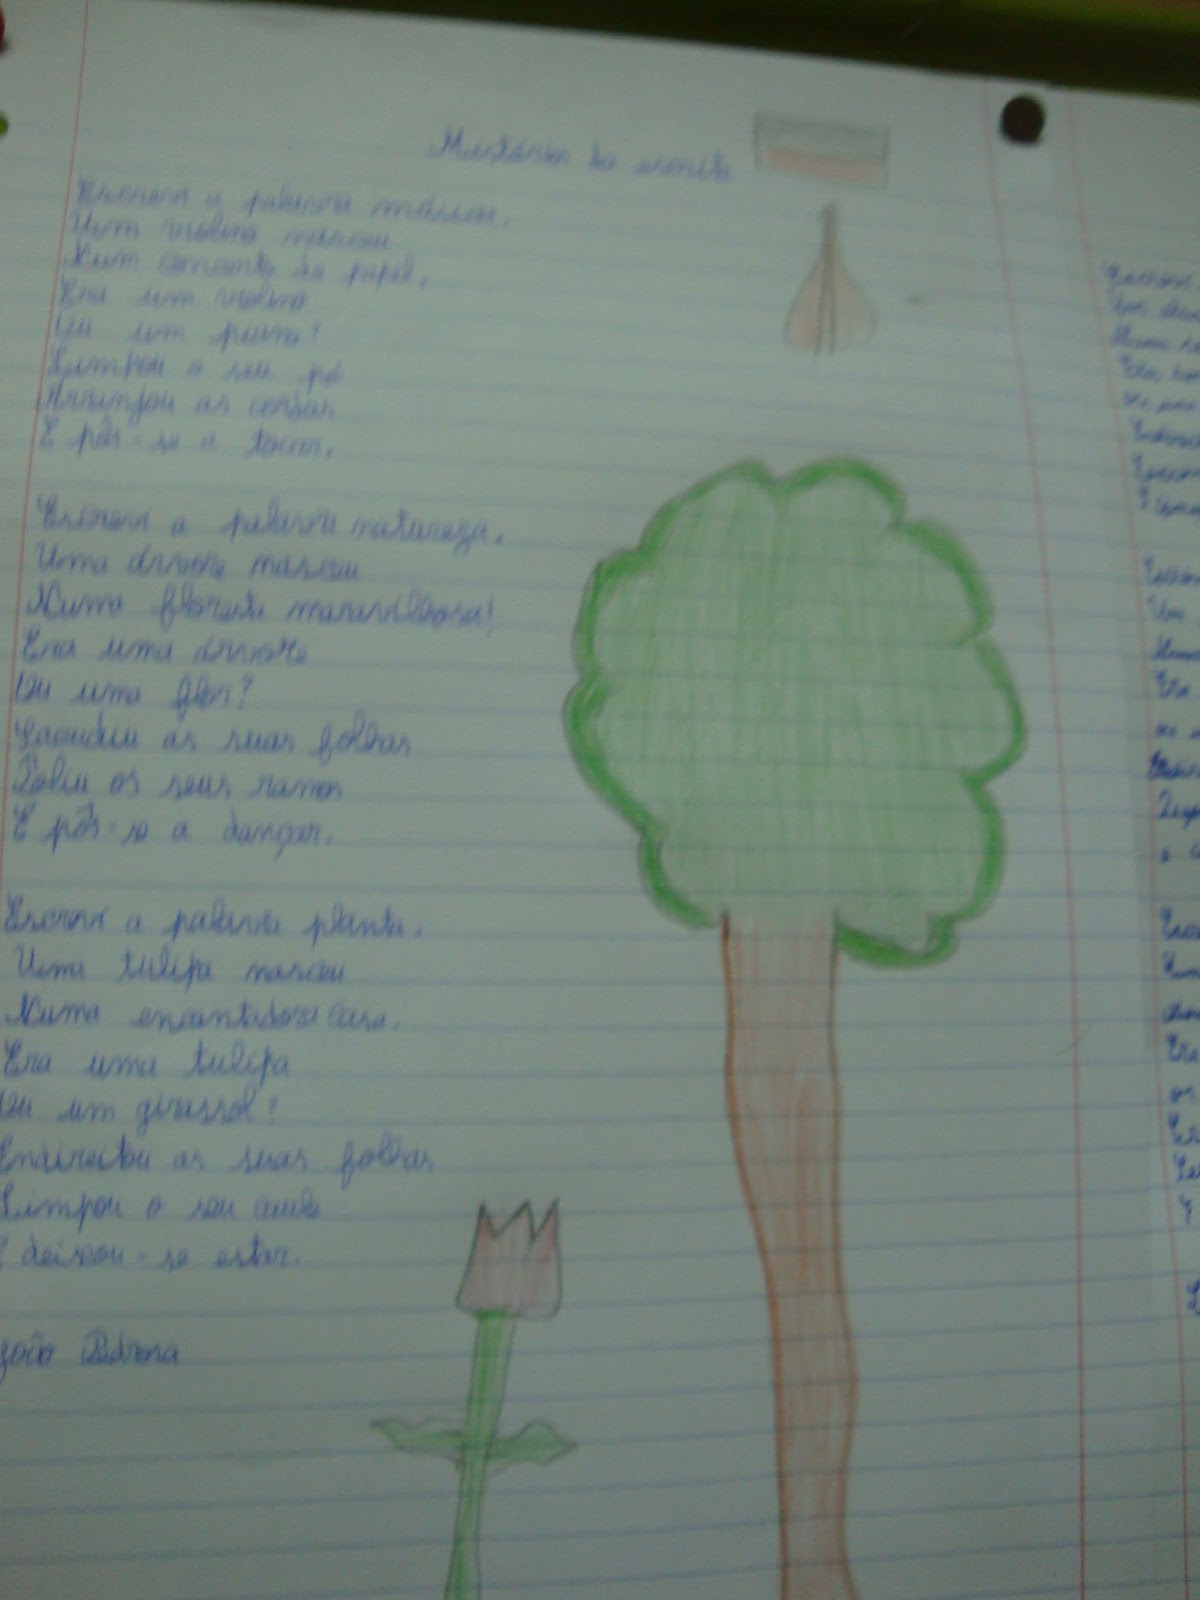 Mistérios da escrita
Escrevi a palavra música.
Um violino nasceu
Num concerto de papel.
Era um violino
Ou um piano?
Limpou o seu pó
Arranjou as cordas
E pôs-se a tocar.
Escrevi a palavra natureza.
Uma árvore nasceu
Numa floresta maravilhosa!
Era uma árvore
Ou uma flor?
Sacudiu as suas folhas
Poliu os seus ramos
E pôs-se a dançar.
Escrevi a palavra planta.
Uma tulipa nasceu
Numa encantadora casa.
Era uma tulipa
Ou um girassol?
Endireitou as suas folhas
Limpou o seu caule
E deixou-se estar.
João Pedrosa